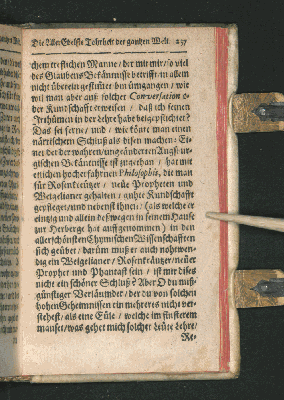 Die AllerEdelste Tohrheit der gantzen Welt. 237
chem trefflichen Manne/ der mit mir/ so viel
des Glaubens Bekäntnisse betrifft/ in allem
nicht überein gestimmet bin ümgangen/ wie
wil man aber aus solcher Conversation o-
der Kundschafft erweisen/ daß ich seinen
Irrthümen in der Lehre habe beigepflichtet?
Das sei ferne/ und/ wie könte man einen
närrischern Schluß als disen machen: Ei-
ner der der wahren/ ungeänderten Augspur-
gischen Bekäntnisse ist zugethan/ hat mit
etlichen hocherfahrnen Philosophis, die man
für Rosenkreützer/ neue Propheten und
Weigelianer gehalten/ guhte Kundschafft
gepflogen/ und nebenst ihnen/ (als welche er
eintzig und allein deßwegen in seinem Hause
zur Herberge hat auffgenommen) in den
allerschönsten Chymischen Wissenschafften
sich geübet/ darüm muß er auch nohtwen-
dig ein Weigelianer/ Rosenkreützer/ neuer
Prophet und Phantast sein/ ist mir dises
nicht ein schöner Schluß? Aber O du miß-
günstiger Verläumder/ der du von solchen
hohen Geheimnissen ein mehreres nicht ver-
stehest/ als eine Eüle/ welche im finsteren
mauset/ was gehet mich solcher Leüte Lehre/
Re-